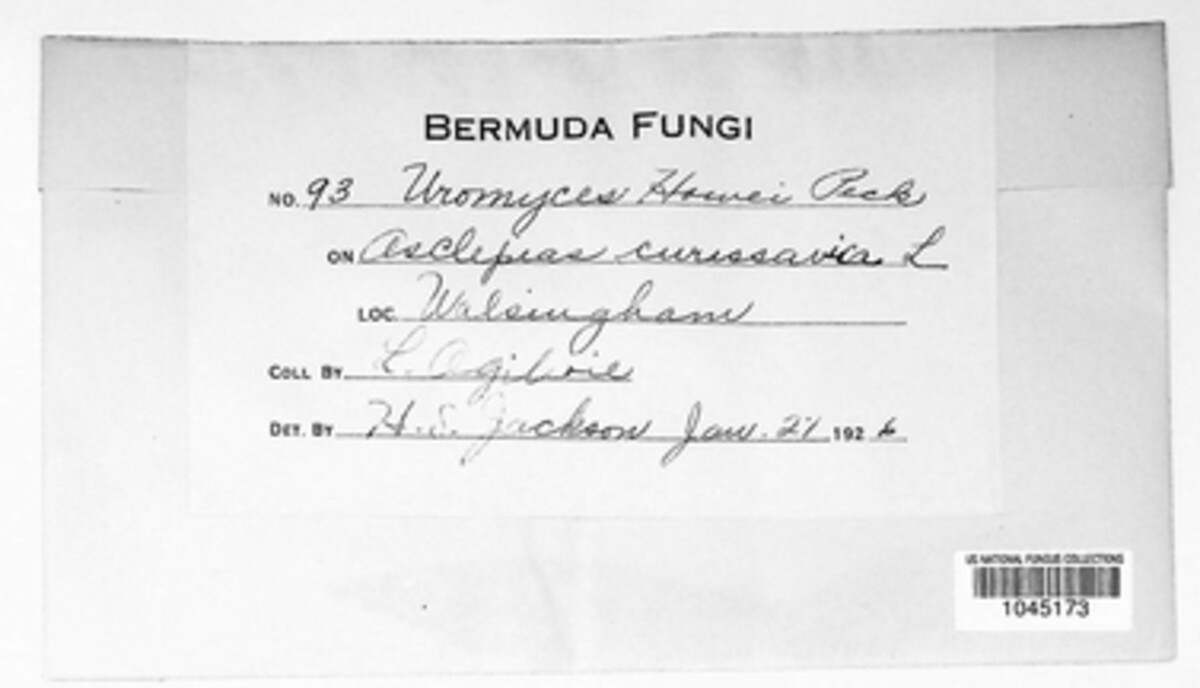 BERMUDA FUNGI
NO. 93 Uromyces Howei Peck
ON Asclepias curassavica L
LOC Walsingham
COLL BY L. Ogilvie
DET. BY H. S. Jackson Jan. 21 1926
US NATIONAL FUNGUS COLLECTIONS
1045173